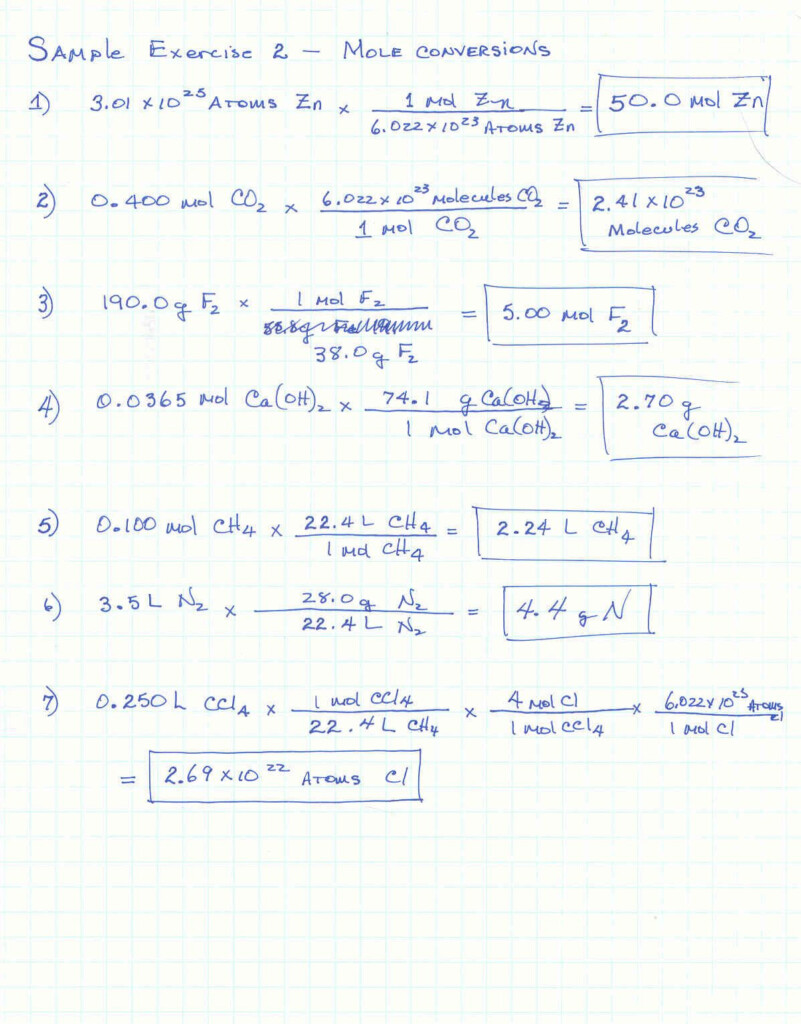 SAMPLE EXERCISE 2 – MOLE CONVERSIONS
1) 3.01 x 10^25 ATOMS Zn x 1 mol Zn / 6.022 x 10^23 ATOMS Zn = 50.0 mol Zn
2) 0.400 mol CO₂ x 6.022 x 10^23 Molecules CO₂ / 1 mol CO₂ = 2.41 x 10^23 Molecules CO₂
3) 190.0 g F₂ x 1 mol F₂ / 38.0 g F₂ = 5.00 mol F₂
4) 0.0365 mol Ca(OH)₂ x 74.1 g Ca(OH)₂ / 1 mol Ca(OH)₂ = 2.70 g Ca(OH)₂
5) 0.100 mol CH₄ x 22.4 L CH₄ / 1 mol CH₄ = 2.24 L CH₄
6) 3.5 L N₂ x 28.0 g N₂ / 22.4 L N₂ = 4.4 g N
7) 0.250 L CCl₄ x 1 mol CCl₄ / 22.4 L CH₄ x 4 mol Cl / 1 mol CCl₄ x 6.022 x 10^23 ATOMS Cl / 1 mol Cl
= 2.69 x 10^22 ATOMS Cl